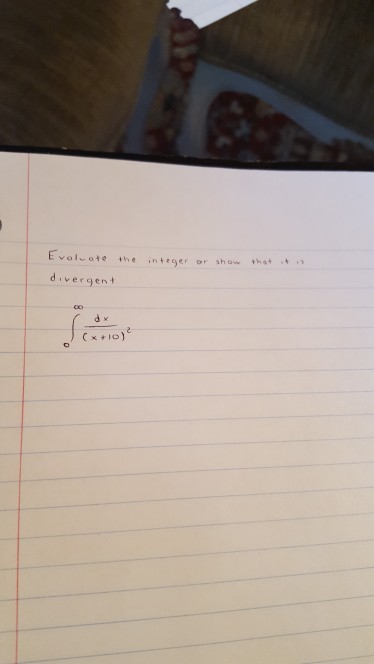 Evaluate the integer or show that it is
divergent
∞
∫ dx
0 (x+10)²